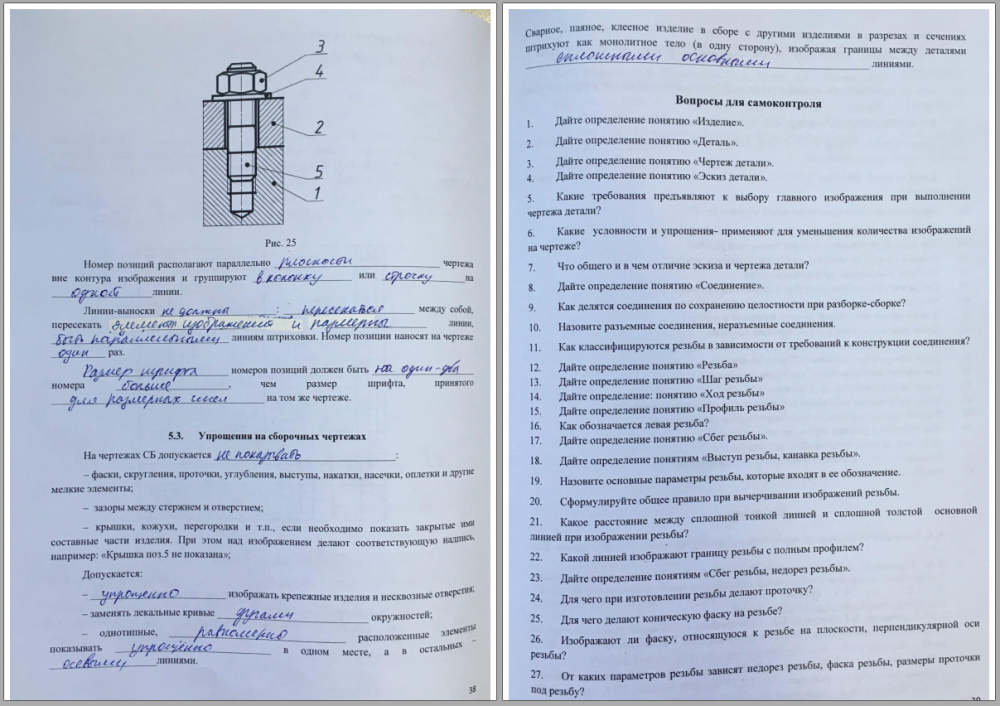 3
4
2
5
1
Рис. 25
Номер позиций располагают параллельно плоскости чертежа
вне контура изображения и группируют в колонку или строчку на
одной линии.
Линии-выноски не должны : пересекаться между собой,
пересекать элемент изображения и размерны линии,
быть параллельными линиям штриховки. Номер позиции наносят на чертеже
один раз.
Размер шрифта номеров позиций должен быть на один-два
номера больше, чем размер шрифта, принятого
для размерных чисел на том же чертеже.
5.3. Упрощения на сборочных чертежах
На чертежах СБ допускается не показывать :
– фаски, скругления, проточки, углубления, выступы, накатки, насечки, оплетки и другие
мелкие элементы;
– зазоры между стержнем и отверстием;
– крышки, кожухи, перегородки и т.п., если необходимо показать закрытые ими
составные части изделия. При этом над изображением делают соответствующую надпись,
например: «Крышка поз.5 не показана»;
Допускается:
– упрощенно изображать крепежные изделия и несквозные отверстия;
– заменять лекальные кривые дугами окружностей;
– однотипные, равномерно расположенные элементы
показывать упрощенно в одном месте, а в остальных –
осевыми линиями.
38
Сварное, паяное, клееное изделие в сборе с другими изделиями в разрезах и сечениях
штрихуют как монолитное тело (в одну сторону), изображая границы между деталями
сплошными основными линиями.
Вопросы для самоконтроля
1. Дайте определение понятию «Изделие».
2. Дайте определение понятию «Деталь».
3. Дайте определение понятию «Чертеж детали».
4. Дайте определение понятию «Эскиз детали».
5. Какие требования предъявляют к выбору главного изображения при выполнении
чертежа детали?
6. Какие условности и упрощения– применяют для уменьшения количества изображений
на чертеже?
7. Что общего и в чем отличие эскиза и чертежа детали?
8. Дайте определение понятию «Соединение».
9. Как делятся соединения по сохранению целостности при разборке-сборке?
10. Назовите разъемные соединения, неразъемные соединения.
11. Как классифицируются резьбы в зависимости от требований к конструкции соединения?
12. Дайте определение понятию «Резьба»
13. Дайте определение понятию «Шаг резьбы»
14. Дайте определение: понятию «Ход резьбы»
15. Дайте определение понятию «Профиль резьбы»
16. Как обозначается левая резьба?
17. Дайте определение понятию «Сбег резьбы».
18. Дайте определение понятиям «Выступ резьбы, канавка резьбы».
19. Назовите основные параметры резьбы, которые входят в ее обозначение.
20. Сформулируйте общее правило при вычерчивании изображений резьбы.
21. Какое расстояние между сплошной тонкой линией и сплошной толстой основной
линией при изображении резьбы?
22. Какой линией изображают границу резьбы с полным профилем?
23. Дайте определение понятиям «Сбег резьбы, недорез резьбы».
24. Для чего при изготовлении резьбы делают проточку?
25. Для чего делают коническую фаску на резьбе?
26. Изображают ли фаску, относящуюся к резьбе на плоскости, перпендикулярной оси
резьбы?
27. От каких параметров резьбы зависят недорез резьбы, фаска резьбы, размеры проточки
под резьбу?